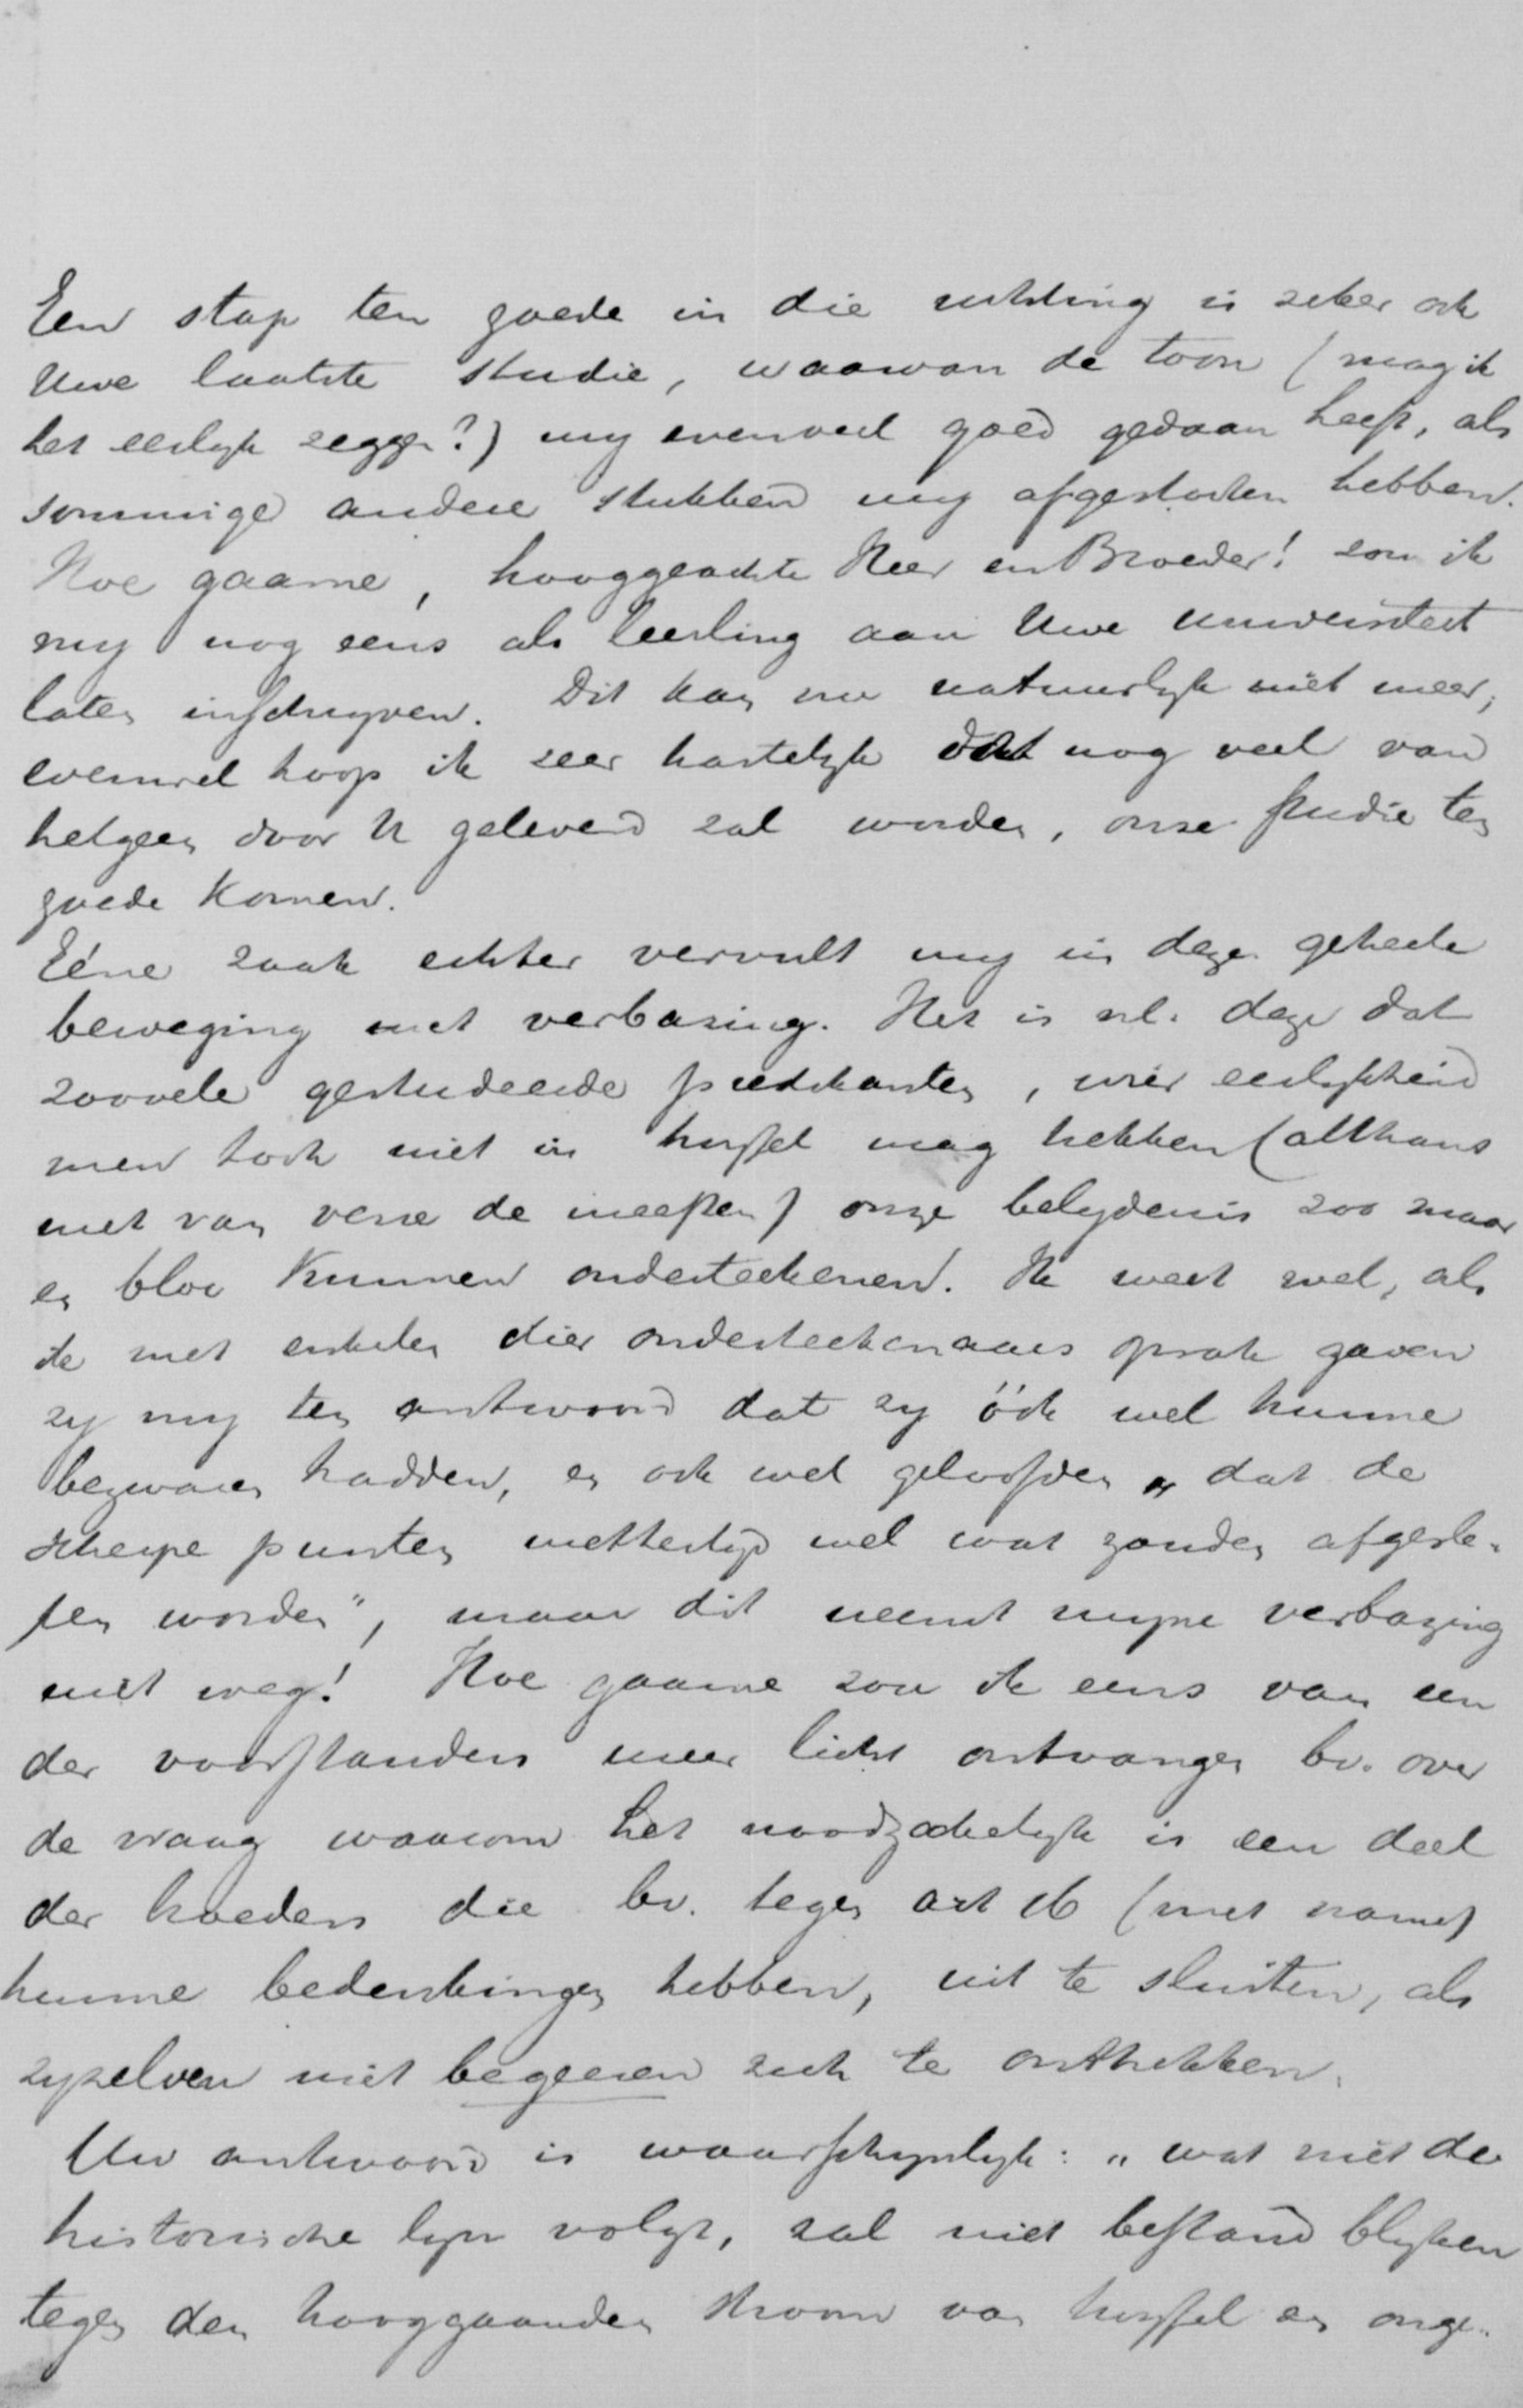 Een stap ten goede in die richting is zeker ook
Uwe laatste studie, waarvan de toon (mag ik
het eerlyk zeggen?) my evenveel goed gedaan heeft, als
sommige andere stukken my afgestooten hebben.
Hoe gaarne, hooggeachte Heer en Broeder! zou ik
my nog eens als leerling aan Uwe universiteit
laten inschryven. Dit kan nu natuurlyk niet meer,
evenwel hoop ik zeer hartelyk dat nog veel van
hetgeen door U geleverd zal worden, onze studie ten
goede komen.
Eéne zaak echter vervult my in deze geheele
beweging met verbazing. Het is nl. deze dat
zoovele gestudeerde predikanten, wier eerlykheid
men toch niet in twyfel mag trekken (althans
niet van verre de meesten) onze belydenis zoo maar
en bloc kunnen onderteekenen. Ik weet wel, als
ik met enkelen dier onderteekenaars sprak gaven
zy my ten antwoord dat zy óók wel hunne
bezwaren hadden, en ook wel geloofden „dat de
scherpe punten mettertyd wel wat zouden afgesle-
pen worden", maar dit neemt myne verbazing
niet weg! Hoe gaarne zou ik eens van een
der voorstanders meer licht ontvangen bv. over
de vraag waarom het noodzakelyk is een deel
der broeders die bv. tegen art 16 (met name)
hunne bedenkingen hebben, uit te sluiten, als
zyzelven niet begeeren zich te onttrekken.
Uw antwoord is waarschynlyk: „wat niet de
historische lyn volgt, zal niet bestand blyken
tegen den hooggaanden stroom van twyfel en onge-